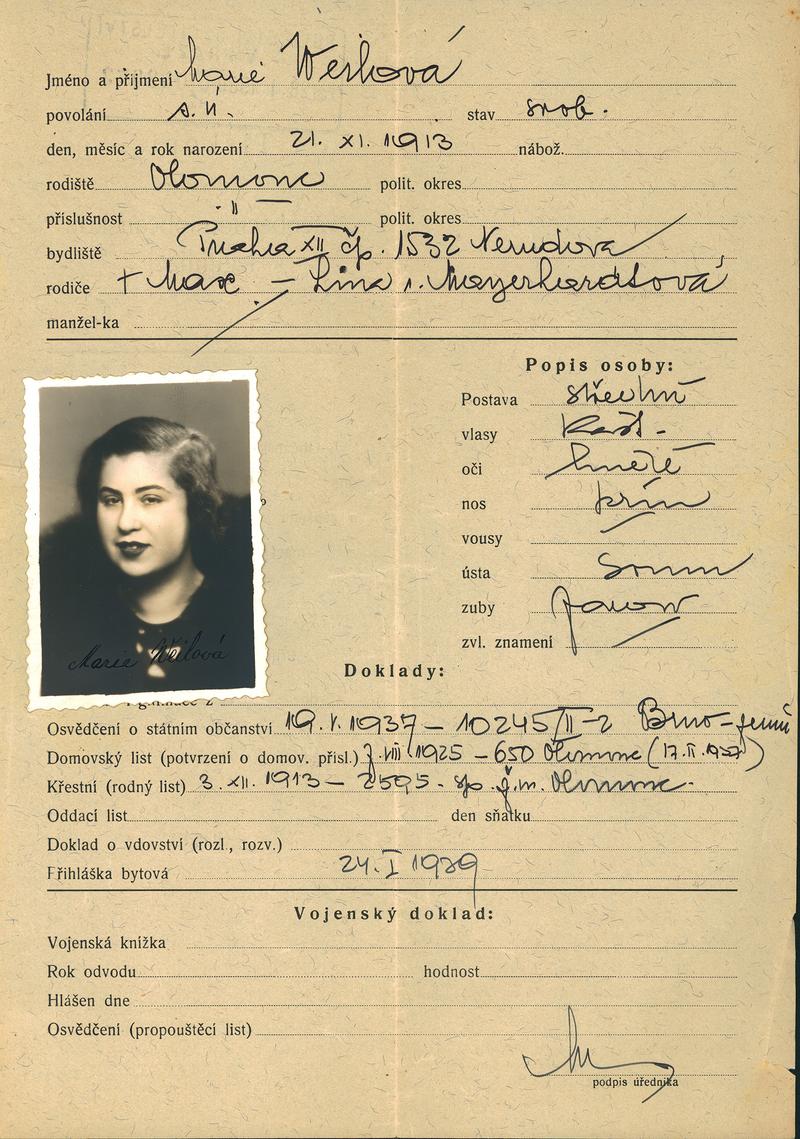 Jméno a příjmení Marie Weilová
povolání s. ú. stav svob.
den, měsíc a rok narození 21. XI. 1913 nábož.
rodiště Olomouc polit. okres
příslušnost -"- polit. okres
bydliště Praha XII čp. 1532 Nerudova
rodiče + Max – Lina r. Mayerhardtsová
manžel-ka
Popis osoby:
Postava střední
vlasy kašt.
oči hnědé
nos přím
vousy
ústa soum
zuby
zvl. znamení
Marie Weilová
Doklady:
Osvědčení o státním občanství 19. V. 1937 – 10245/II-2 Brno-
Domovský list (potvrzení o domov. přísl.) 7. VIII 1925 – 650 Olomouc (17. II. 1937)
Křestní (rodný list) 3. XII. 1913 – 2595. Olomouc.
Oddací list den sňatku
Doklad o vdovství (rozl., rozv.)
Přihláška bytová 24. I 1939
Vojenský doklad:
Vojenská knížka
Rok odvodu hodnost
Hlášen dne
Osvědčení (propouštěcí list)
podpis úředníka